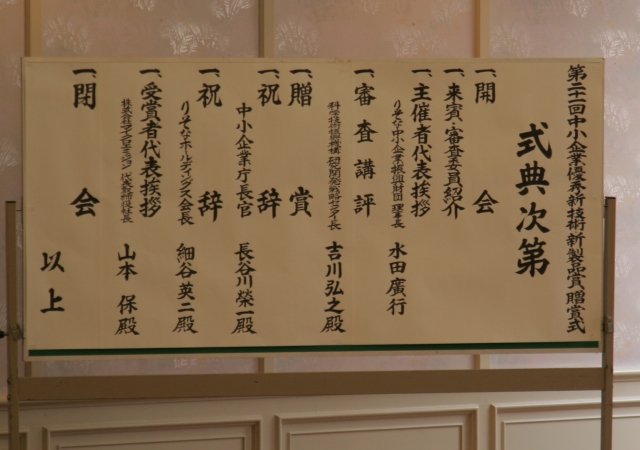 第二十一回中小企業優秀新技術・新製品賞贈賞式
式典次第
一、開会
一、来賓・審査委員紹介
一、主催者代表挨拶
りそな中小企業振興財団 理事長
水田廣行
一、審査講評
科学技術振興機構 研究開発戦略センター長
吉川弘之殿
一、贈賞
一、祝辞
中小企業庁長官
長谷川榮一殿
一、祝辞
りそなホールディングス会長
細谷英二殿
一、受賞者代表挨拶
代表取締役社長
山本 保殿
一、閉会
以上